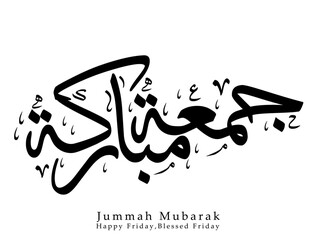 جمعة مباركة
Jummah Mubarak
Happy Friday,Blessed Friday